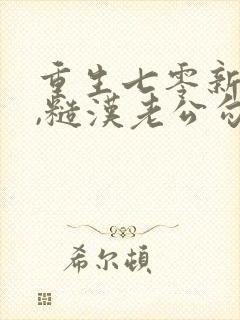 重生七零新
,糙漢老公勾
希尔頓